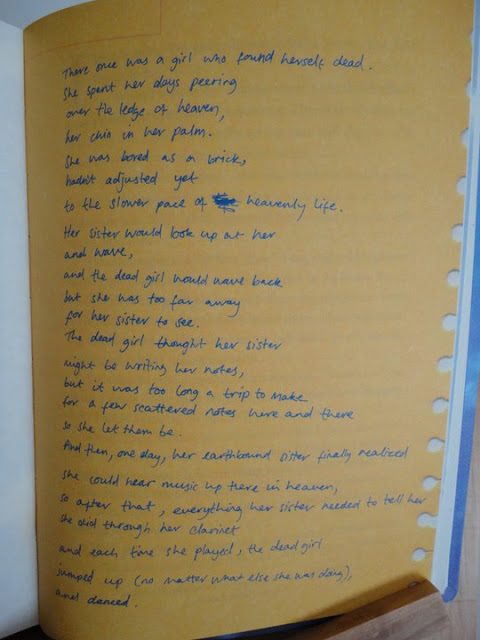 There once was a girl who found herself dead.
She spent her days peering
over the ledge of heaven,
her chin in her palm.
She was bored as a brick,
hadn't adjusted yet
to the slower pace of heavenly life.
Her sister would look up at her
and wave,
and the dead girl would wave back
but she was too far away
for her sister to see.
The dead girl thought her sister
might be writing her notes,
but it was too long a trip to make
for a few scattered notes here and there
so she let them be.
And then, one day, her earthbound sister finally realized
she could hear music up there in heaven,
so after that, everything her sister needed to tell her
she did through her clarinet
and each time she played, the dead girl
jumped up (no matter what else she was doing),
and danced.